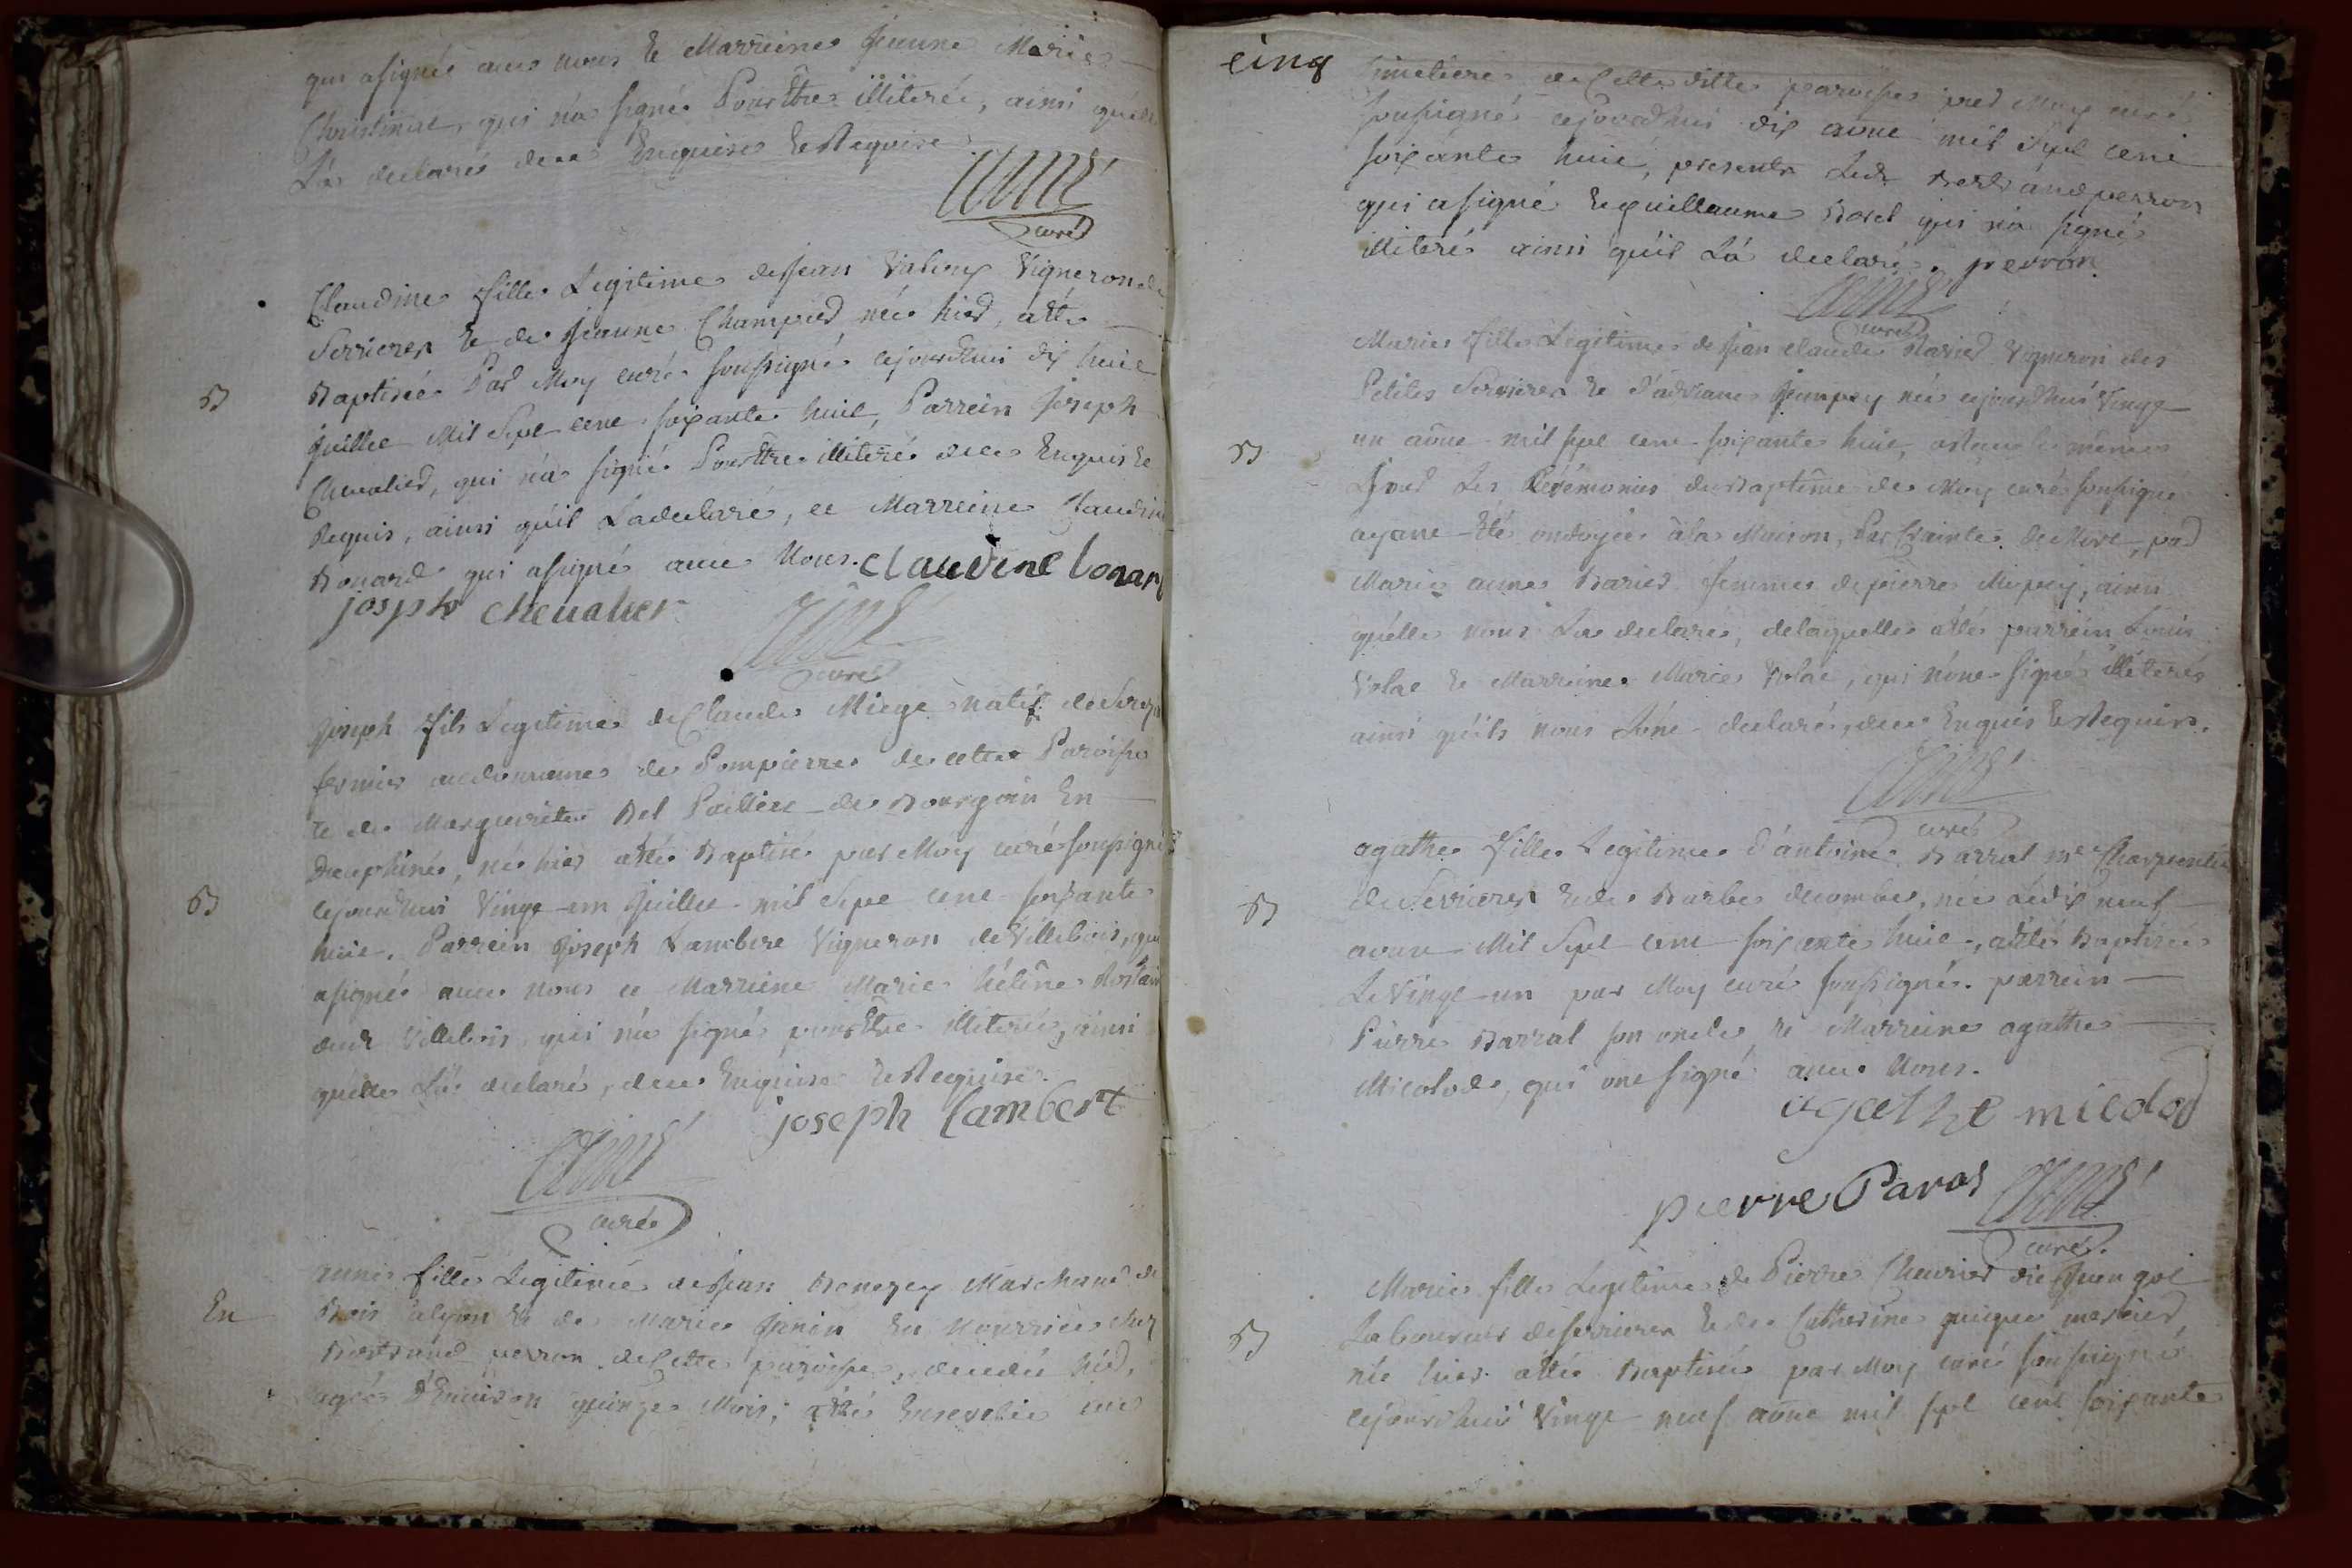 qui a signé avec nous et Marreine Jeanne Marie
Christinat, qui n'a signé Pour Etre illiterée, ainsi qu'elle
L'a declaré de ce Enquise et Requise
curé
Claudine fille Legitime de Jean Vigneron de
Serrieres et de Jeanne Champied née hier, a été
B
Baptisée Par Moy curé soussigné cejourd'hui dix huit
Juillet Mil Sept cent soixante huit, Parrein Joseph
Chevalier, qui n'a signé Pour Etre illiteré de ce Enquis et
Requis, ainsi qu'il La declaré, et Marreine Claudine
Bonard qui a signé avec Nous. Claudine bonard
joseph chevalier
curé
Joseph fils Legitime de Claude Miege natif de
fermier au domaine de Pompierre de cette Paroisse
et de Marguerite Bel de Bourgoin En
Dauphiné, né hier a été Baptisé par Moy curé soussigné
B
cejourd'hui Vingt un Juillet mil Sept cent soixante
huit. Parrein Joseph Lambert Vigneron de Villebois, qui
a signé avec nous et Marreine Marie hélène Rostain
dud Villebois qui n'a signé pour Etre illiterée, ainsi
qu'elle L'a declaré, de ce Enquise et Requise.
joseph lambert
curé
anne fille Legitime de Jean Marchand de
En
Bois a lyon et de Marie Janin En nourrice chez
Bertrand perron de Cette paroisse, decedée hier,
agée d'Environ quinze Mois, a été Ensevelie au
cinq
Cimetiere de Cette ditte paroisse par Moy curé
soussigné cejourd'hui dix aout mil Sept cent
soixante huit, presents Led. Bertrand perron
qui a signé et guillaume Borel qui n'a signé
illiteré ainsi qu'il L'a declaré. perron
curé
Marie fille Legitime de Jean claude Barier Vigneron des
Petites Serrieres et d'andreane née cejourd'hui Vingt
B
un aout mil sept cent soixante huit, le même
Jour Les Cérémonies du Baptême de Moy curé soussigné
ayant Eté ondoyée a la Maison, Par Crainte de Mort, par
Marie anne Barier femme de pierre ainsi
qu'elle nous La declaré, de laquelle a été parrein Louis
Volat et Marreine Marie Volat, qui n'ont signé illiterés
ainsi qu'ils nous L'ont declaré, de ce Enquis et Requis.
curé
agathe fille Legitime d'antoine Barral me Charpentier
B
de Serrieres et de Barbe decombe, née Le dix neuf
aout Mil Sept cent soixante huit, a été Baptisée
Le Vingt un par Moy curé soussigné. parrein
Pierre Barral son oncle et Marreine agathe
Micolod, qui ont signé avec Nous.
agathe micolod
pierre Paral
curé.
Marie fille Legitime de Pierre Cheurier dit
B
Laboureur de Serrieres et de Catherine
née hier a été Baptisée par Moy curé soussigné
cejourd'hui Vingt neuf aout mil sept cent soixante